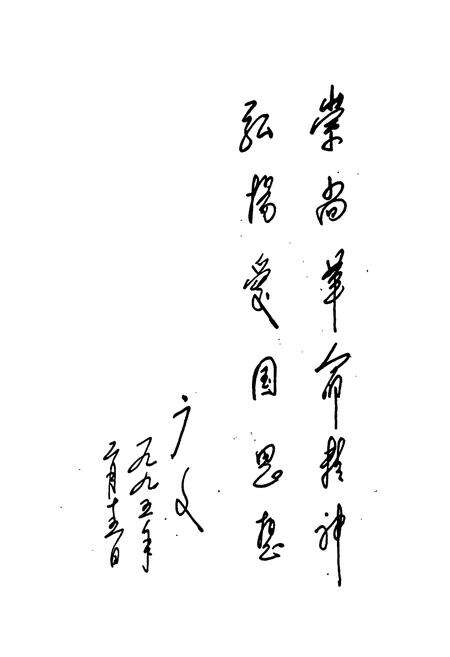 荣尚革命精神
弘扬爱国思想
广文
一九九五年
二月十五日